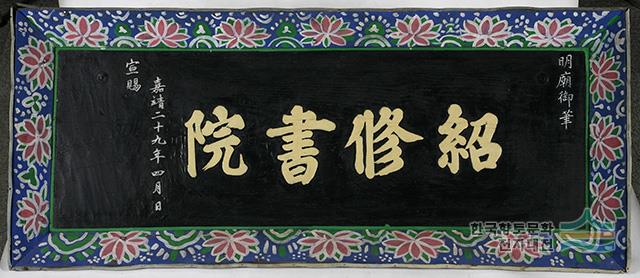 明廟御筆
紹修書院
嘉靖二十九年四月日
宣賜
한국향토문화
전자대전